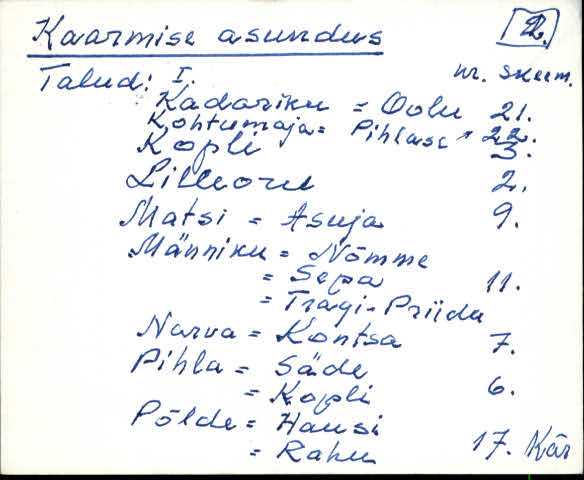 Kaarmise asundus 2.
Talud: I. nr. skeem.
Kadariku = Oolu 21.
Kohtumaja = Pihlase 22.
Kopli 3.
Lilleoru 2.
Matsi = Asuja 9.
Männiku = Nõmme
= Sepa 11.
= Tragi-Priidu
Narva = Kontsa 7.
Pihla = Säde
= Kopli 6.
Põlde = Hansi
= Rahu 17. Kär